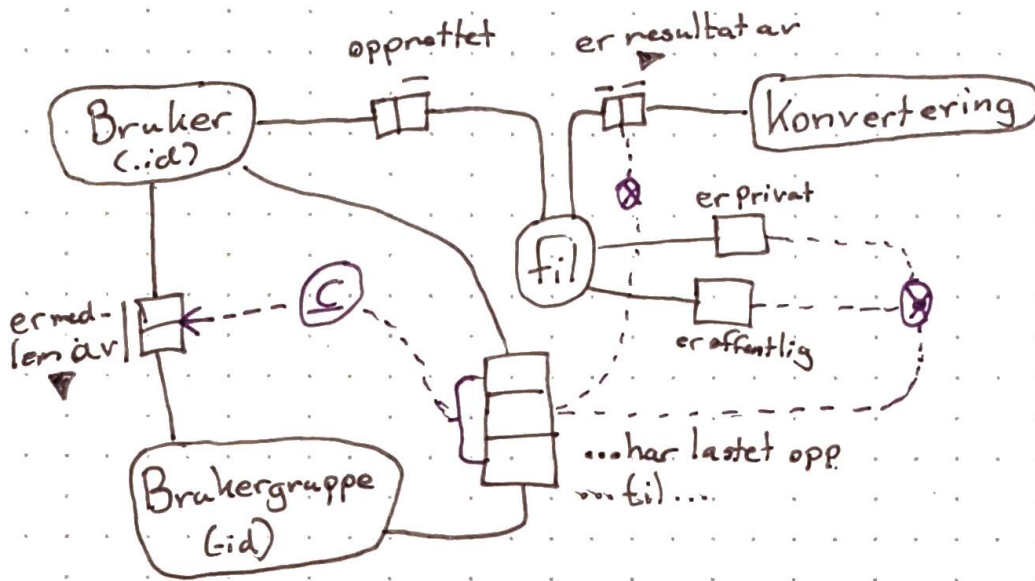 oppnettet
er resultat av
Bruker
(.id)
Konvertering
er privat
fil
C
er med-
lem av
er offentlig
...har lastet opp
...til...
Brukergruppe
(-id)